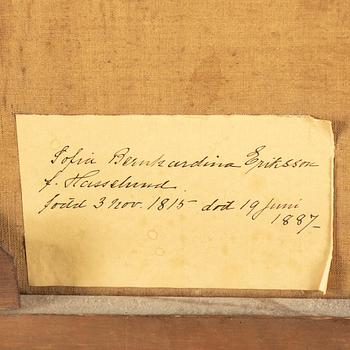 Sofia Bernhardina Eriksson
f. Hasselund.
född 3 nov. 1815 död 19 juni
1887